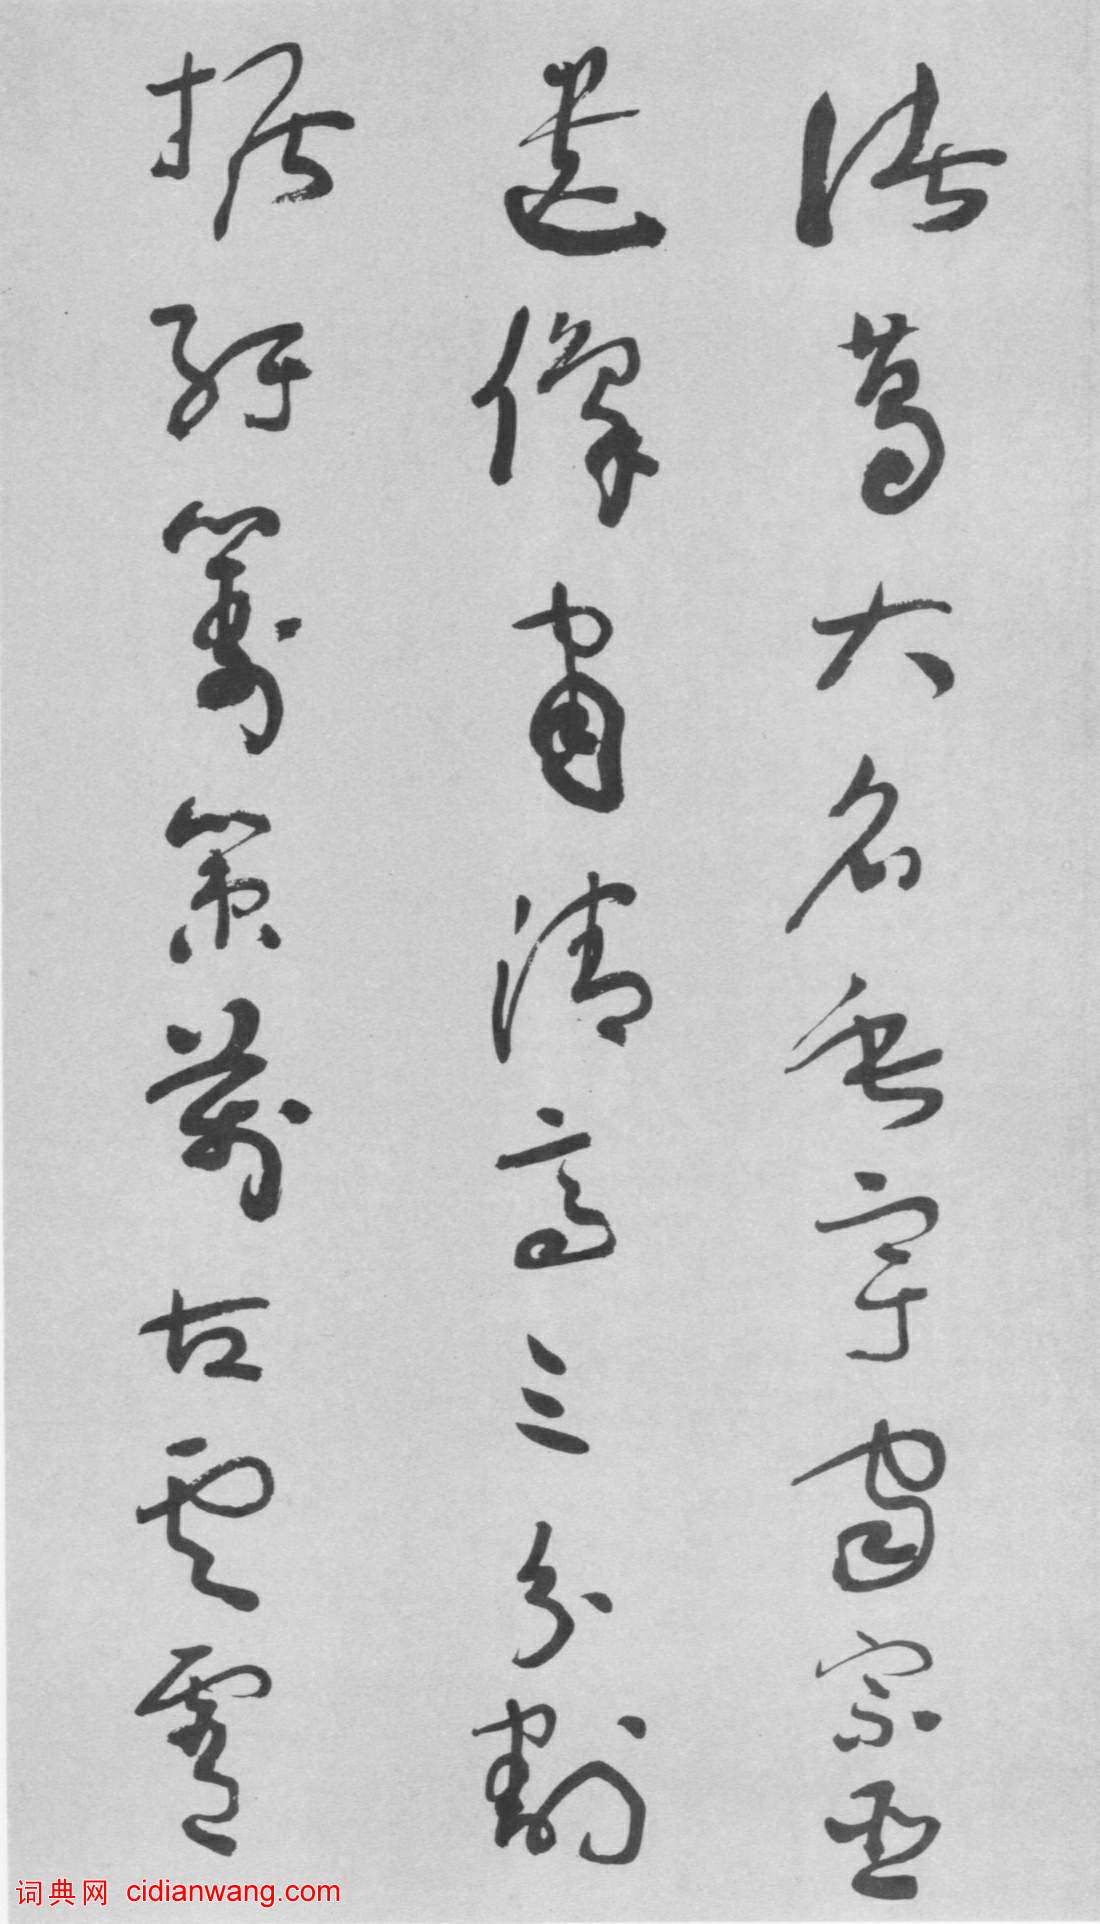 諸葛大名垂宇宙宗臣
遺像肅清高三分割
据紆籌策萬古雲霄
词典网 cidianwang.com